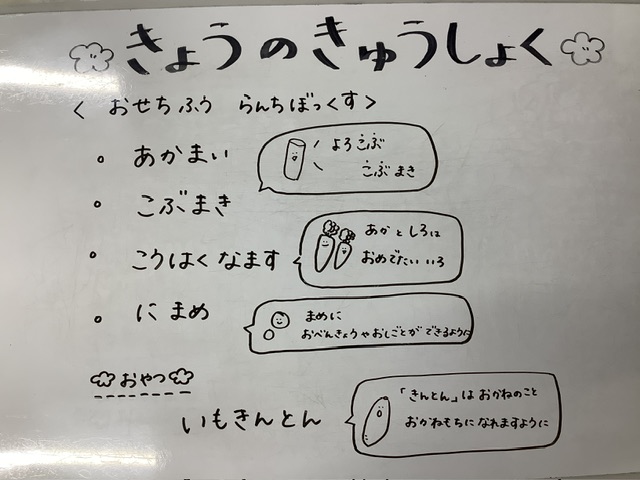 きょうのきゅうしょく
< おせちふう らんちぼっくす>
。 あかまい
よろこぶ
こぶまき
。 こぶまき
。 こうはくなます
あかとしろは
おめでたいいろ
。 にまめ
まめに
おべんきょうやおしごとができるように
おやつ
いもきんとん
「きんとん」はおかねのこと
おかねもちになれますように